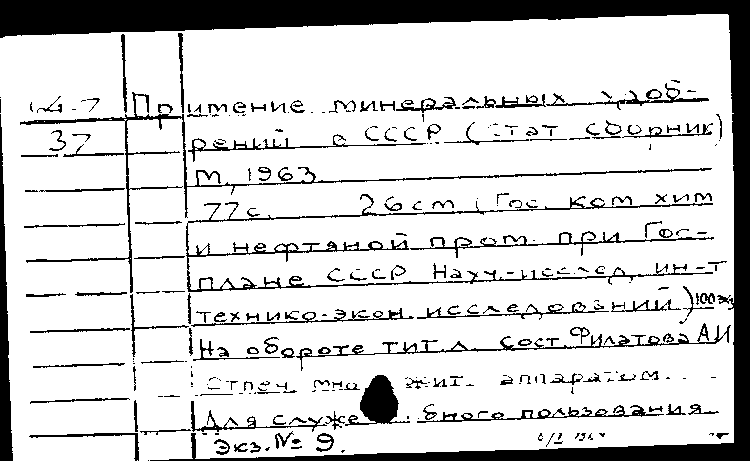 Применение минеральных удоб-
37 рений в СССР (Стат сборник)
М., 1963
77с. 26cm (Гос. ком хим
и нефтяной пром. при Гос-
плане СССР Науч.-исслед. ин-т
технико-экон. исследований) 100 экз
На обороте тит. л. сост. Филатова А.И.
Отпеч. множит. аппаратом.
Для служебного пользования
Экз. № 9.